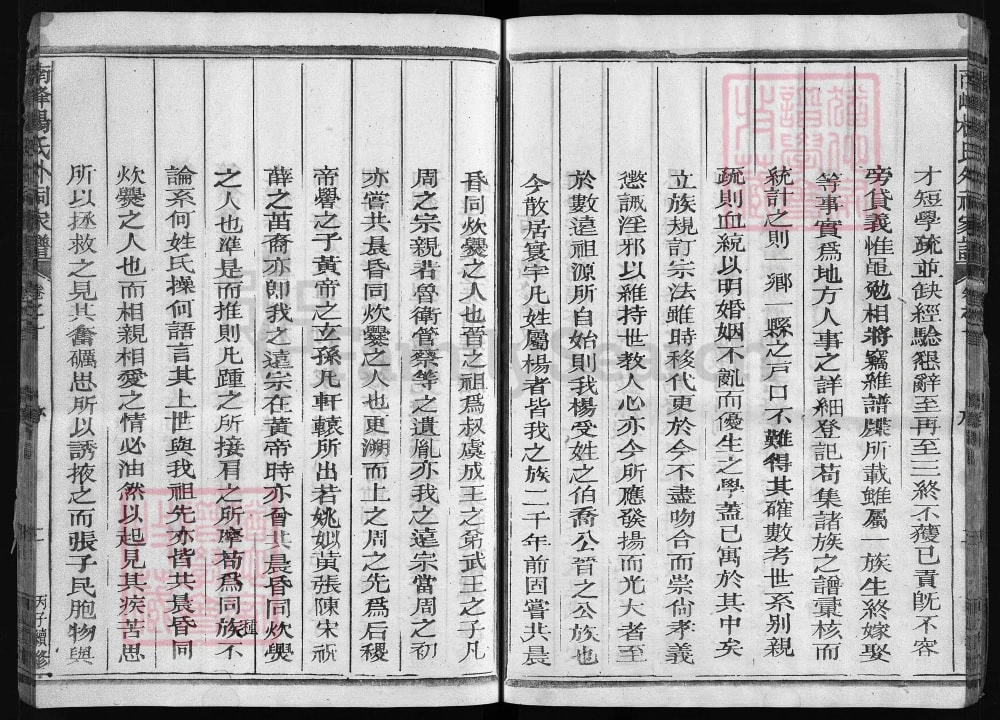 才短學疏並缺經驗懇辭至再至三終不獲已責旣不容
旁貸義惟黽勉相將竊維譜牒所載雖屬一族生終嫁娶
等事實爲地方人事之詳細登記苟集諸族之譜彙核而
統計之則一鄉一縣之戶口不難得其確數考世系別親
疏則血統以明婚姻不亂而優生之學蓋已寓於其中矣
立族規訂宗法雖時移代更於今不盡吻合而崇尙孝義
懲譏淫邪以維持世教人心亦今所應發揚而光大者至
於數遠祖源所自始則我楊受姓之伯喬公晉之公族也
今散居寰宇凡姓屬楊者皆我之族二千年前固嘗共晨
昏同炊爨之人也晉之祖爲叔虞成王之弟武王之子凡
周之宗親若魯衛管蔡等之遺胤亦我之遠宗當周之初
亦嘗共晨昏同炊爨之人也更溯而上之周之先爲后稷
帝嚳之子黃帝之玄孫凡軒轅所出若姚姒黃張陳宋祝
薛之苗裔亦卽我之遠宗在黃帝時亦曾共晨昏同炊爨
之人也準是而推則凡踵之所接肩之所摩苟爲同族不
種
論系何姓氏操何語言其上世與我祖先亦皆共晨昏同
炊爨之人也而相親相愛之情必油然以起見其疾苦思
所以拯救之見其奮礪思所以誘掖之而張子民胞物與
南峰楊氏外祠家譜
丙子續修